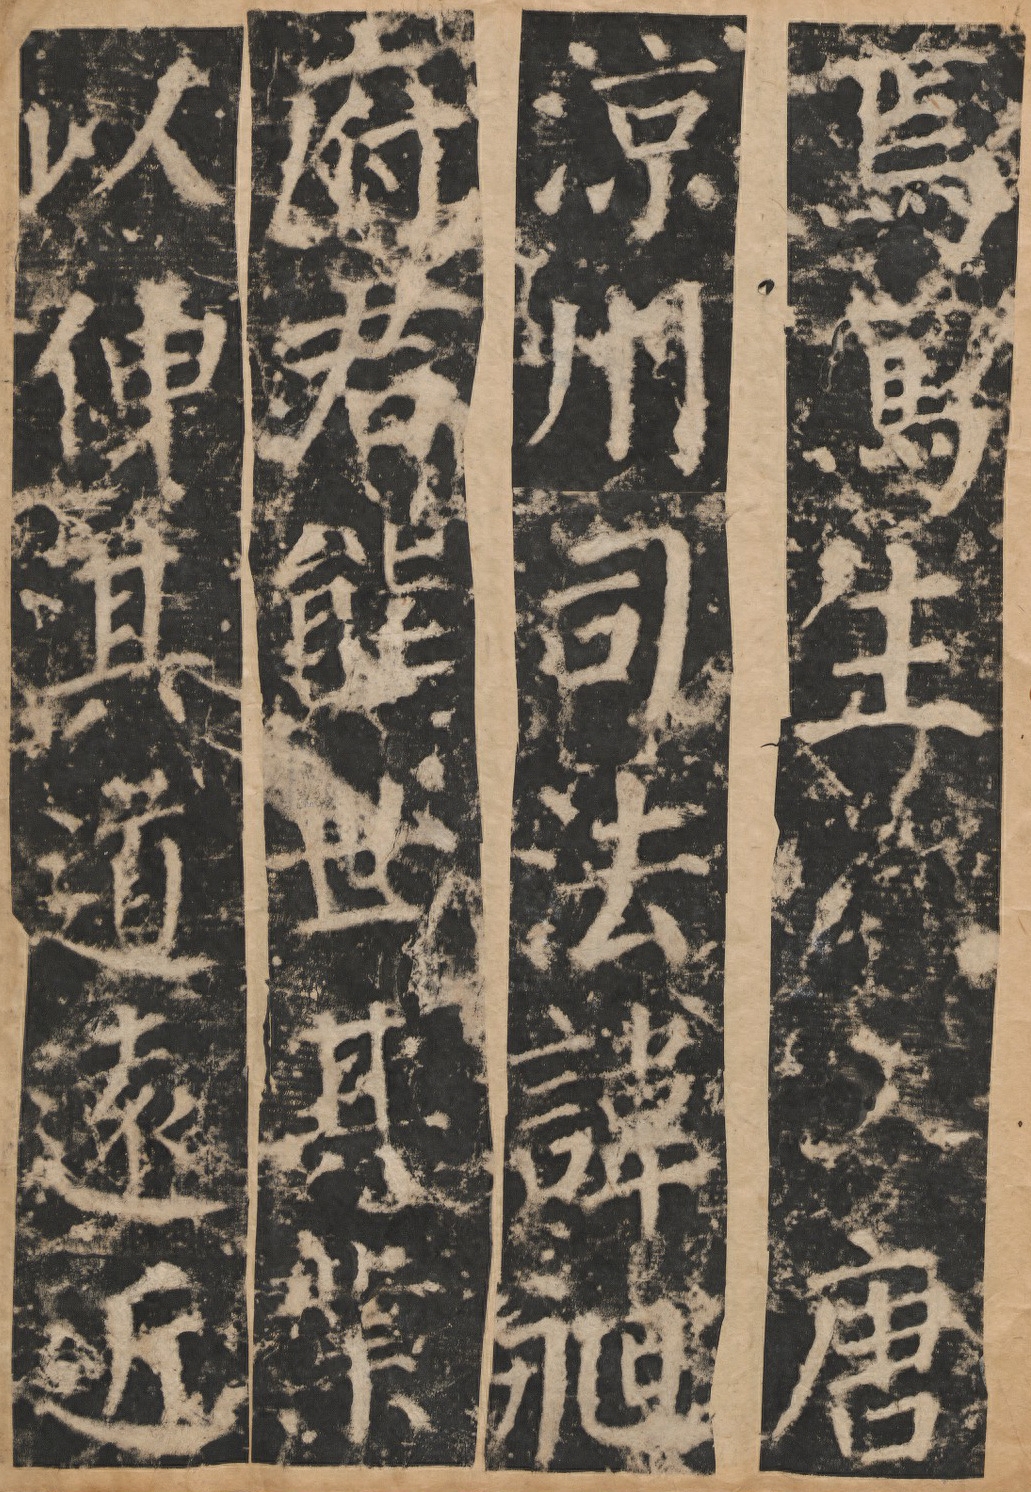 焉篤生唐
涼州司法諱旭
府君能世其業
以伸其道遠近